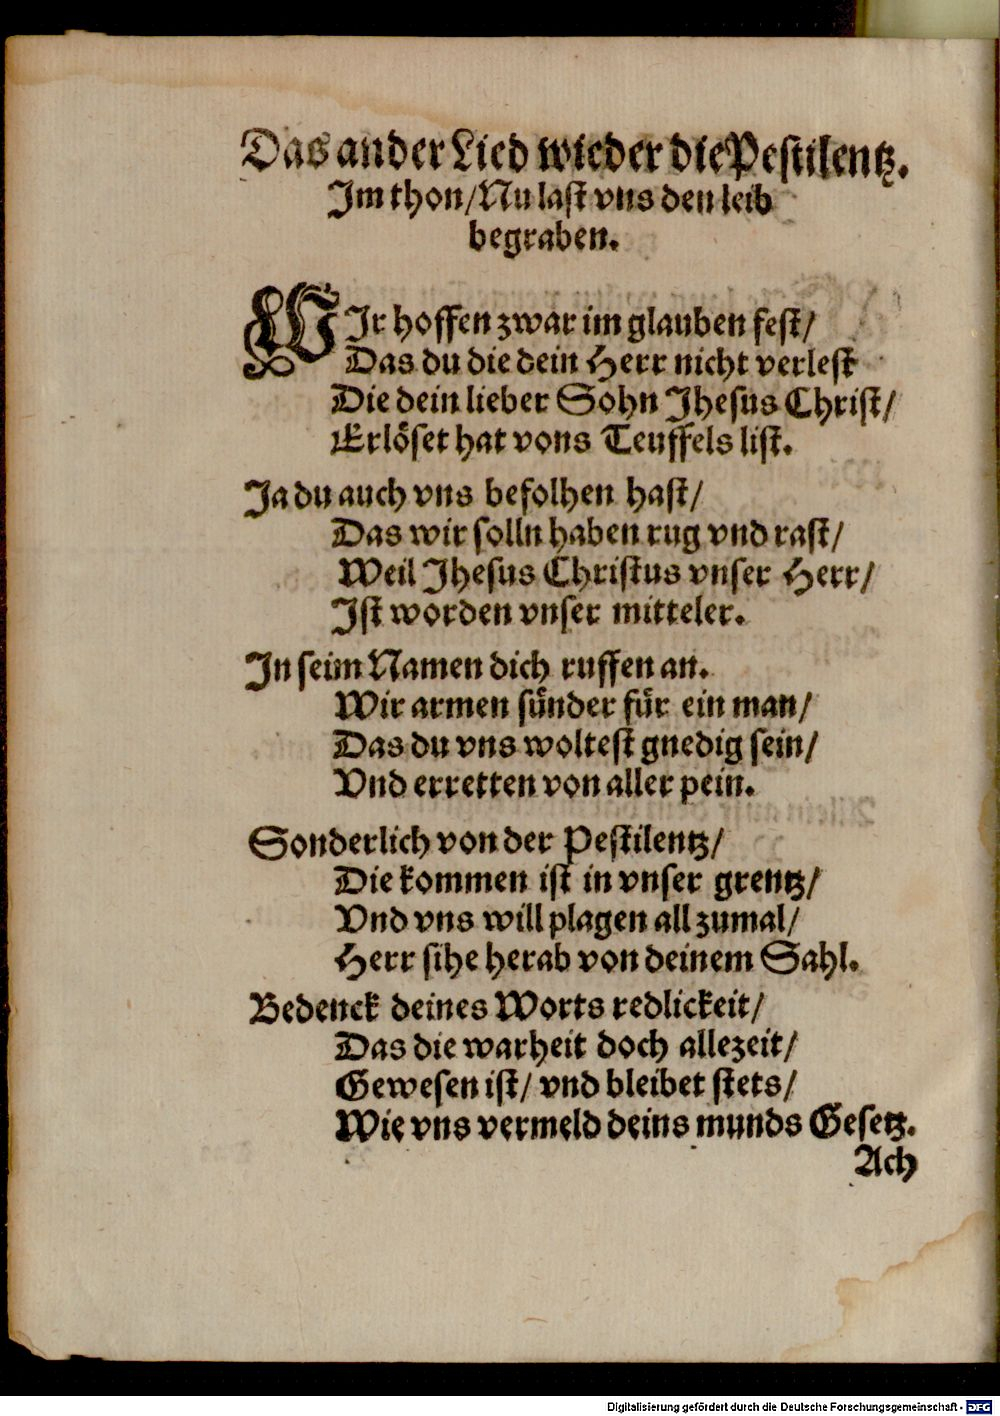 Das ander Lied wieder die Pestilentz.
Im thon/ Nu last vns den leib
begraben.
WIr hoffen zwar im glauben fest/
Das du die dein Herr nicht verlest
Die dein lieber Sohn Jhesus Christ/
Erlöset hat vons Teuffels list.
Ja du auch vns befolhen hast/
Das wir solln haben rug vnd rast/
Weil Jhesus Christus vnser Herr/
Ist worden vnser mitteler.
In seim Namen dich ruffen an.
Wir armen sünder für ein man/
Das du vns woltest gnedig sein/
Vnd erretten von aller pein.
Sonderlich von der Pestilentz/
Die kommen ist in vnser grentz/
Vnd vns will plagen all zumal/
Herr sihe herab von deinem Sahl.
Bedenck deines Worts redlickeit/
Das die warheit doch allezeit/
Gewesen ist/ vnd bleibet stets/
Wie vns vermeld deins munds Gesetz.
Ach
Digitalisierung gefördert durch die Deutsche Forschungsgemeinschaft - DFG